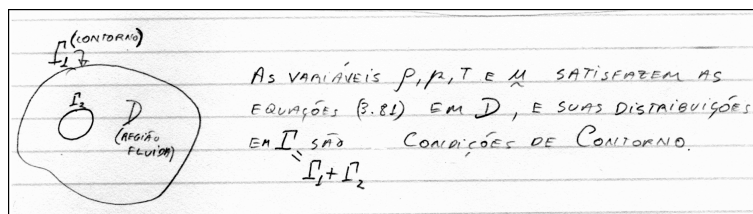 (CONTORNO)
Γ₁
Γ₂
D
(REGIÃO
FLUIDA)
AS VARIÁVEIS ρ, p, T E ṵ SATISFAZEM AS
EQUAÇÕES (3.81) EM D, E SUAS DISTRIBUIÇÕES
EM Γ SÃO CONDIÇÕES DE CONTORNO.
Γ₁ + Γ₂